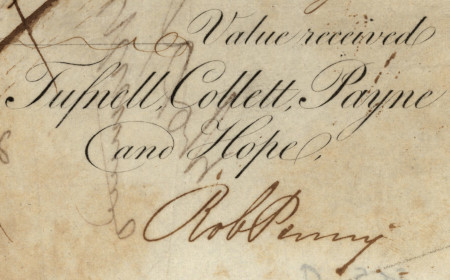 Value received
Tufnell, Collett, Payne
and Hope.
Rob Penny